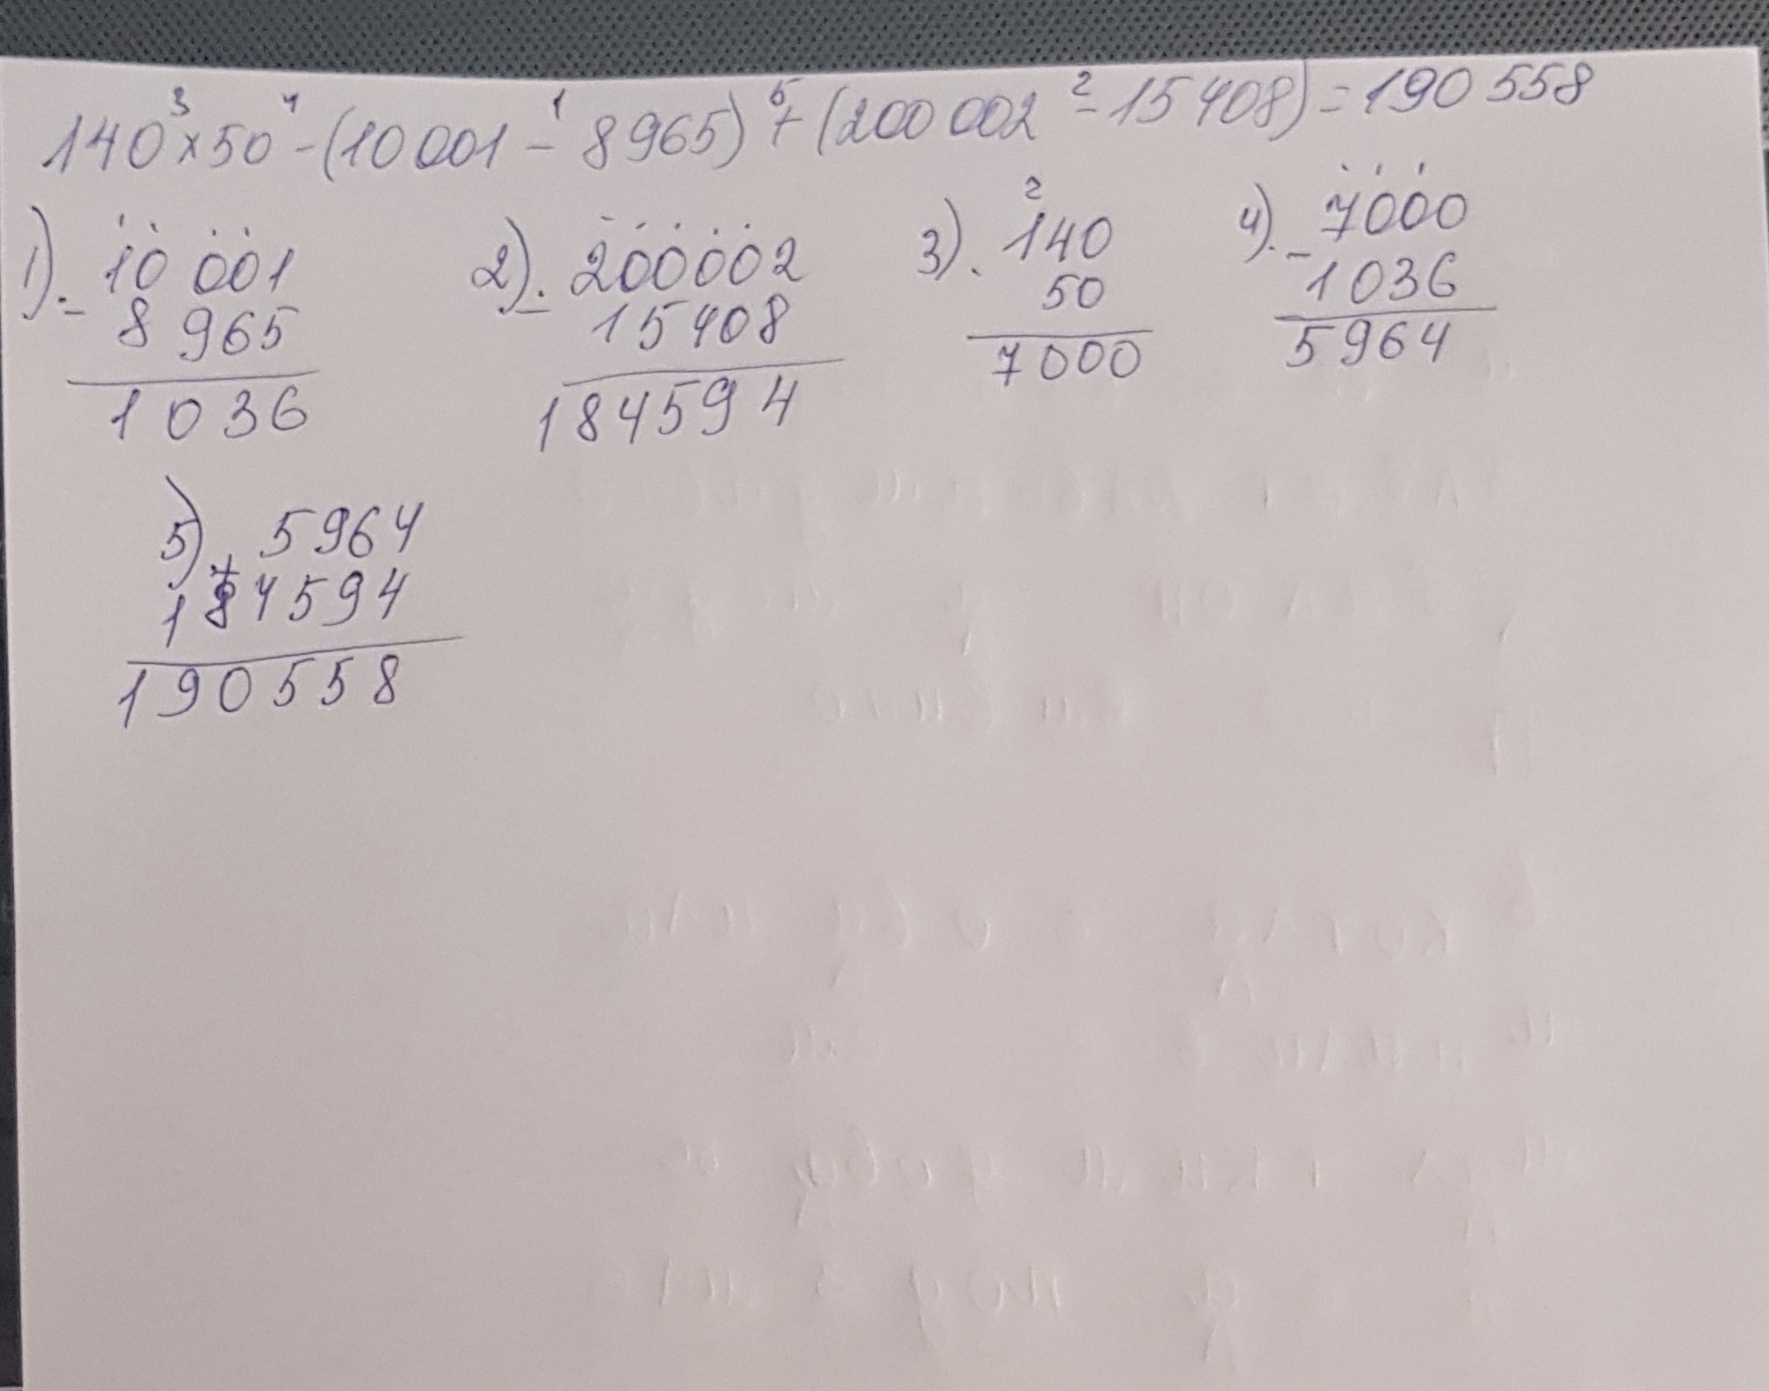 140 × 50 - (10 001 - 8 965) + (200 002 - 15 408) = 190 558
3 4 1 5 2
1). - 10 001
8 965
1 036
2). - 200002
15 408
184594
3). 2
140
50
7000
4). - 7000
1036
5964
5) + 5964
184594
190558